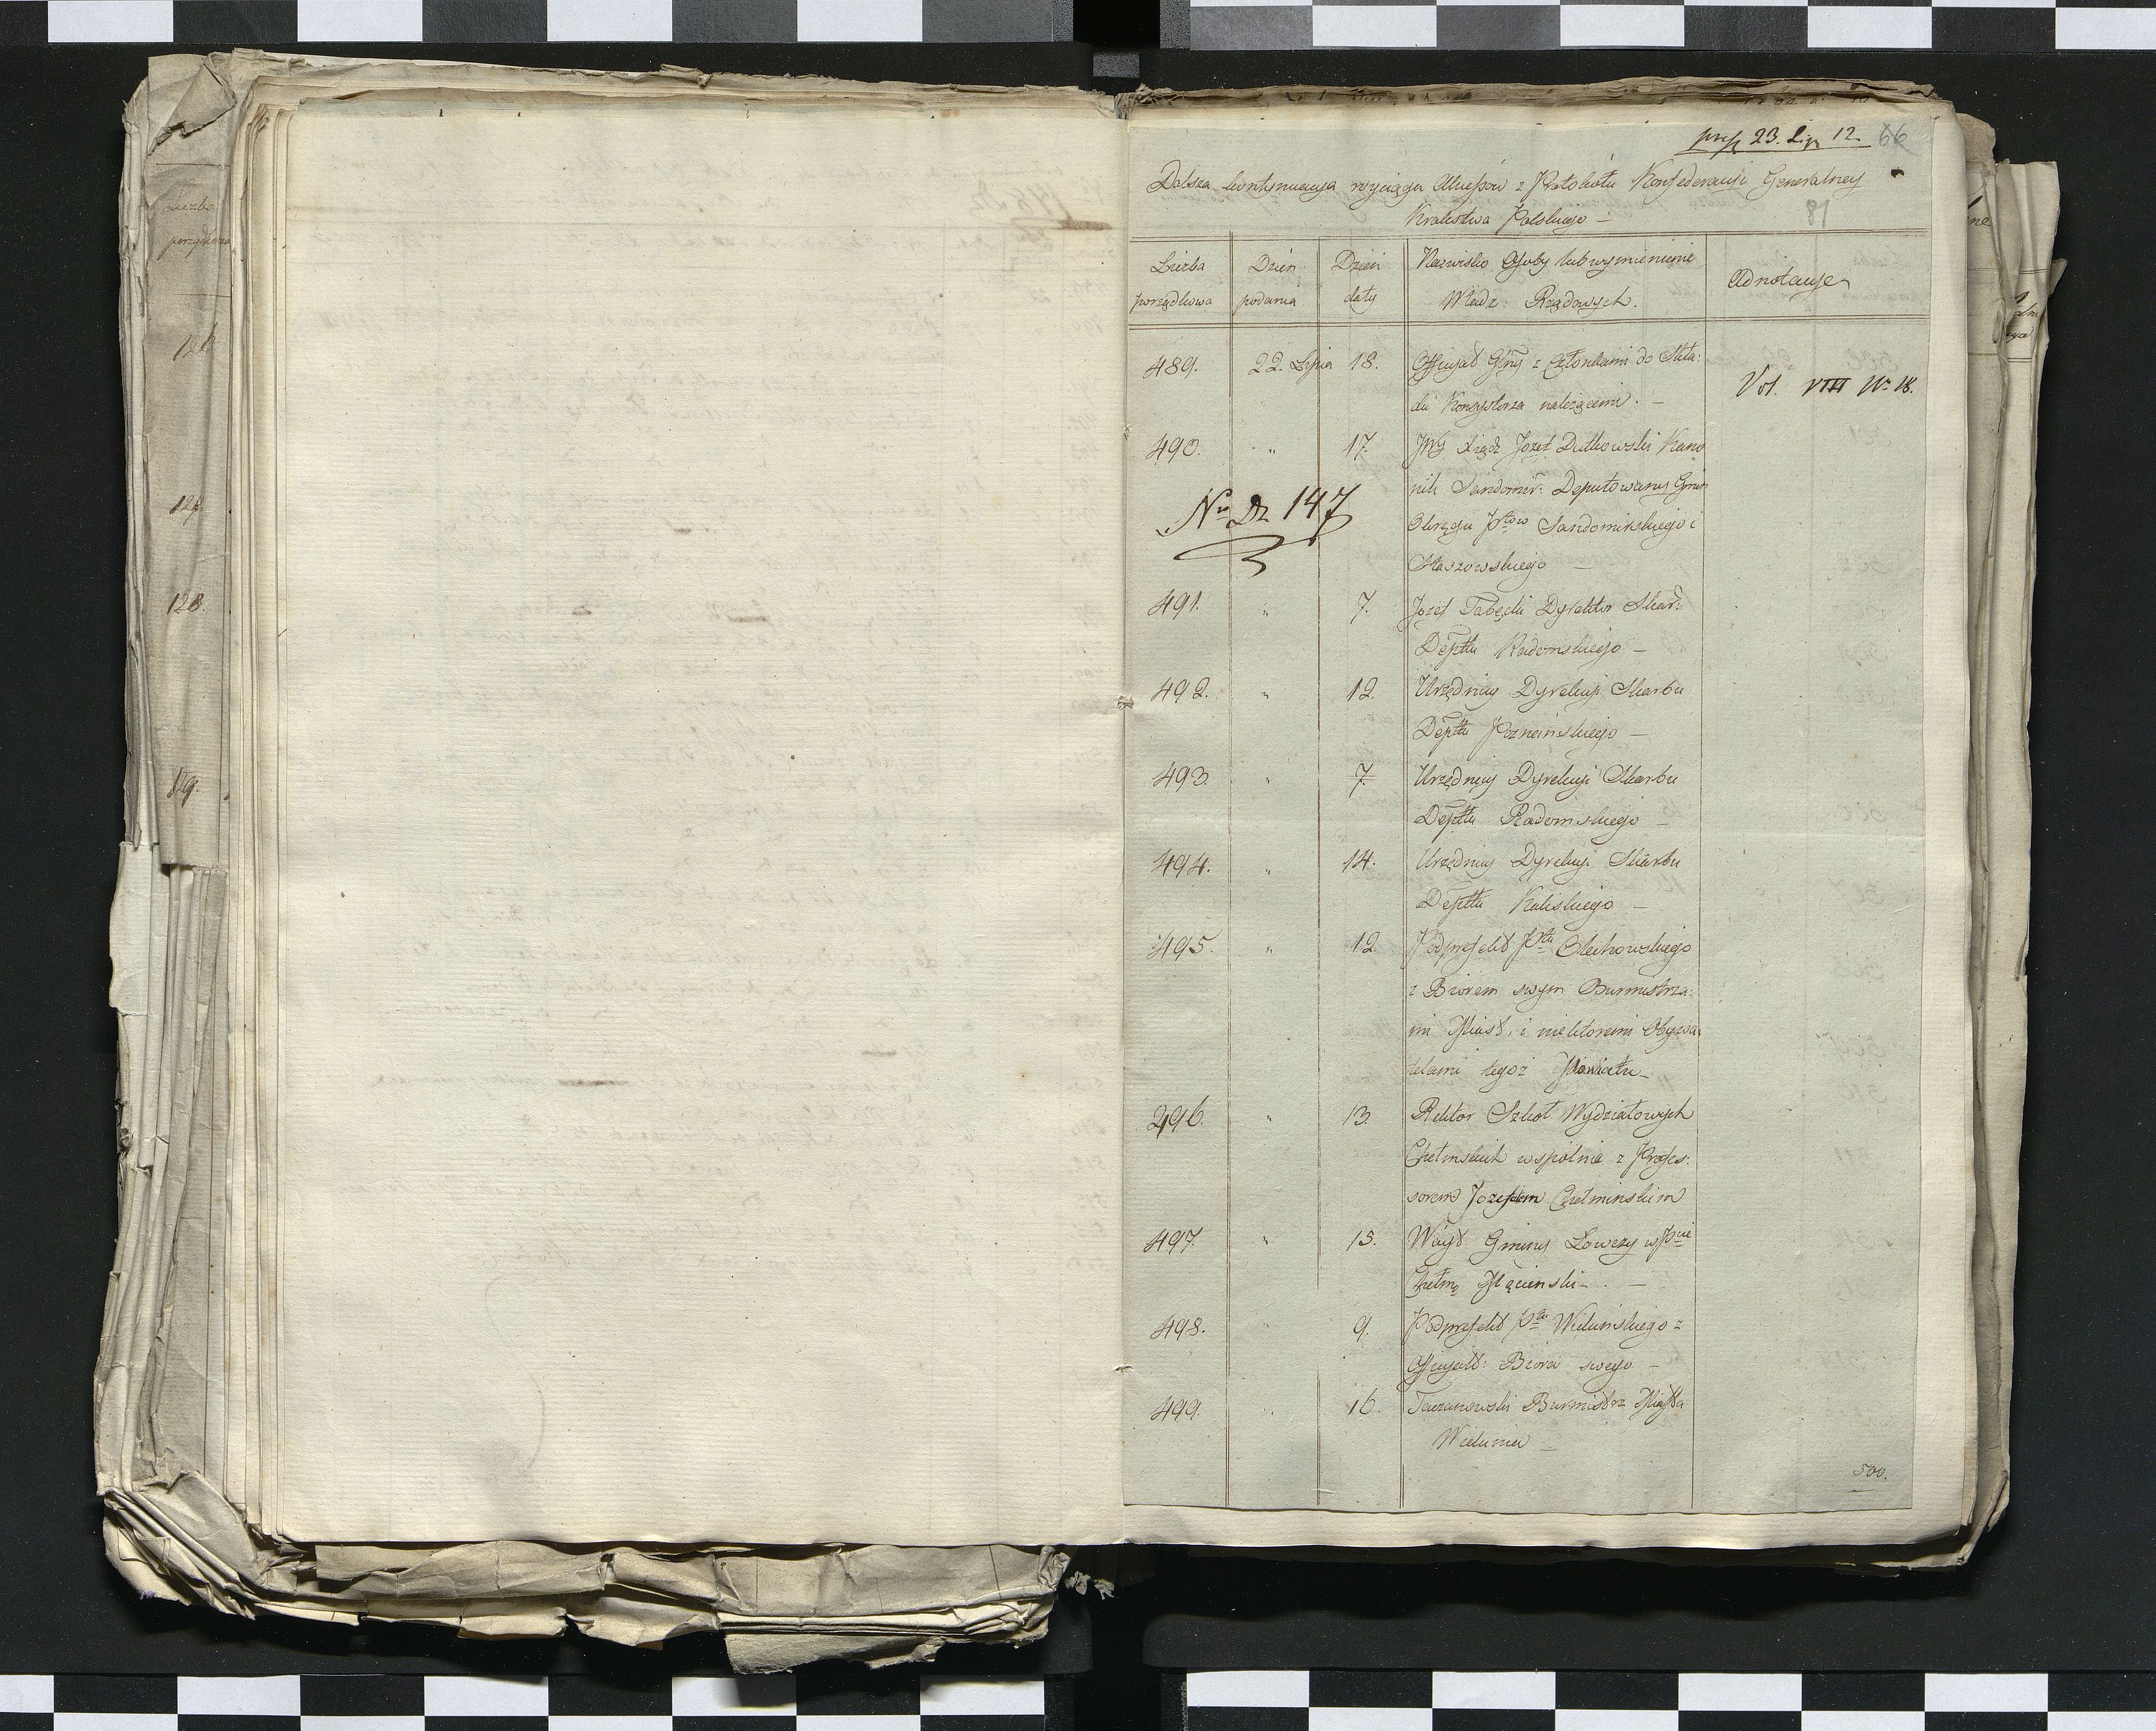 Liczba
porządkowa
128.
129.
23. Lip. 12.
66
Dalsza kontynuacya wyciągu Akcessów z Protokołu Konfederacyi Generalney
Królestwa Polskiego —
81
Liczba porządkowa
Dzień podania
Dzień daty
Nazwisko Osoby lub wymienienie
Władz Rządowych.
Adnotacye
489. 22. Lipca 18. Officyał Głny z Członkami do Skła:
du Konsystorza należącemi. —
Vol. VIII Nr 18.
490. " 17. Xiądz Jozef Dutkowski Kano
nik Sandomir: Deputowany Gmin
Okręgu Ptów Sandomirskiego i
Staszowskiego —
No Dz 147
491. " 7. Jozef Dyrektor Skar:
Deptu Radomskiego —
492. " 12. Urzędnicy Dyrekcyi Skarbu
Deptu Poznańskiego —
493. " 7. Urzędnicy Dyrekcyi Skarbu
Deptu Radomskiego —
494. " 14. Urzędnicy Dyrekcyi Skarbu
Deptu Kaliskiego —
495. " 12. Podprefekt Ptu
z Biorem swym Burmistrza:
mi Miast, i niektoremi Obywa:
telami tegoż Powiatu —
496. " 13. Rektor Szkoł Wydziałowych
Chełmskich wspolnie z Profes:
sorem Jozefem Chełminskim
497. " 15. Woyt Gminy Łowczy w Pcie
498. " 9. Podprefekt Ptu Wieluńskiego z
Officyalt: Biora swego —
499. " 16. Taczanowski Burmistrz Miasta
Wielunia —
500.